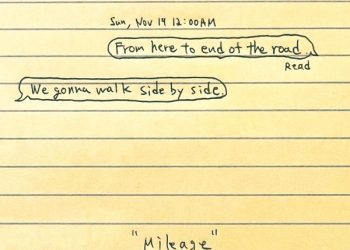 Sun, Nov 14 12:00AM
From here to end of the road.
Read
We gonna walk side by side.
"Mileage"